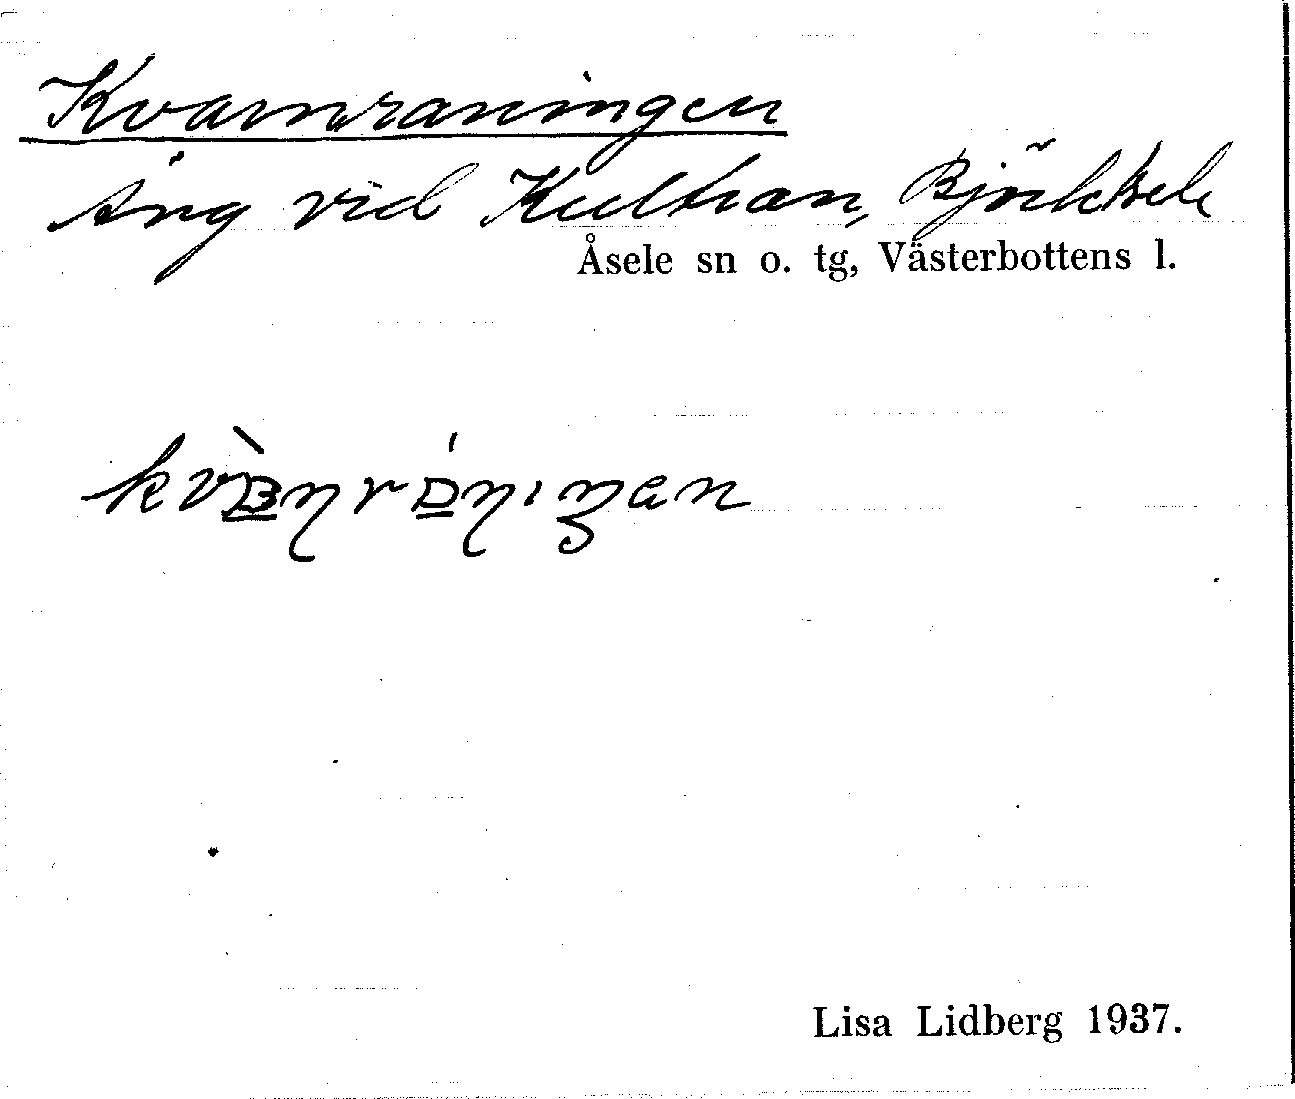 Kvarnraningen
Äng vid Kultran, Björksele
Åsele sn o. tg, Västerbottens l.
Lisa Lidberg 1937.